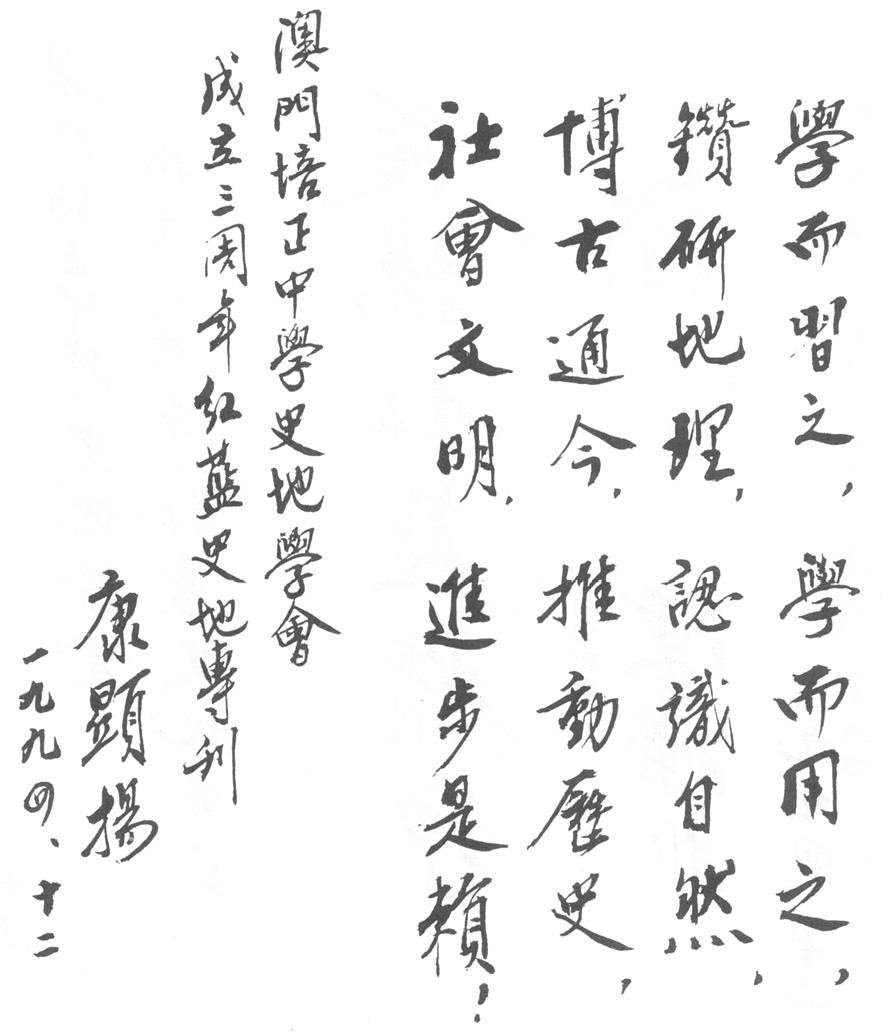 學而習之,學而用之,
鑽研地理,認識自然,
博古通今,推動歷史,
社會文明,進步是賴!
澳門培正中學史地學會
成立三周年紅藍史地專刊
康顯揚
一九九四、十二